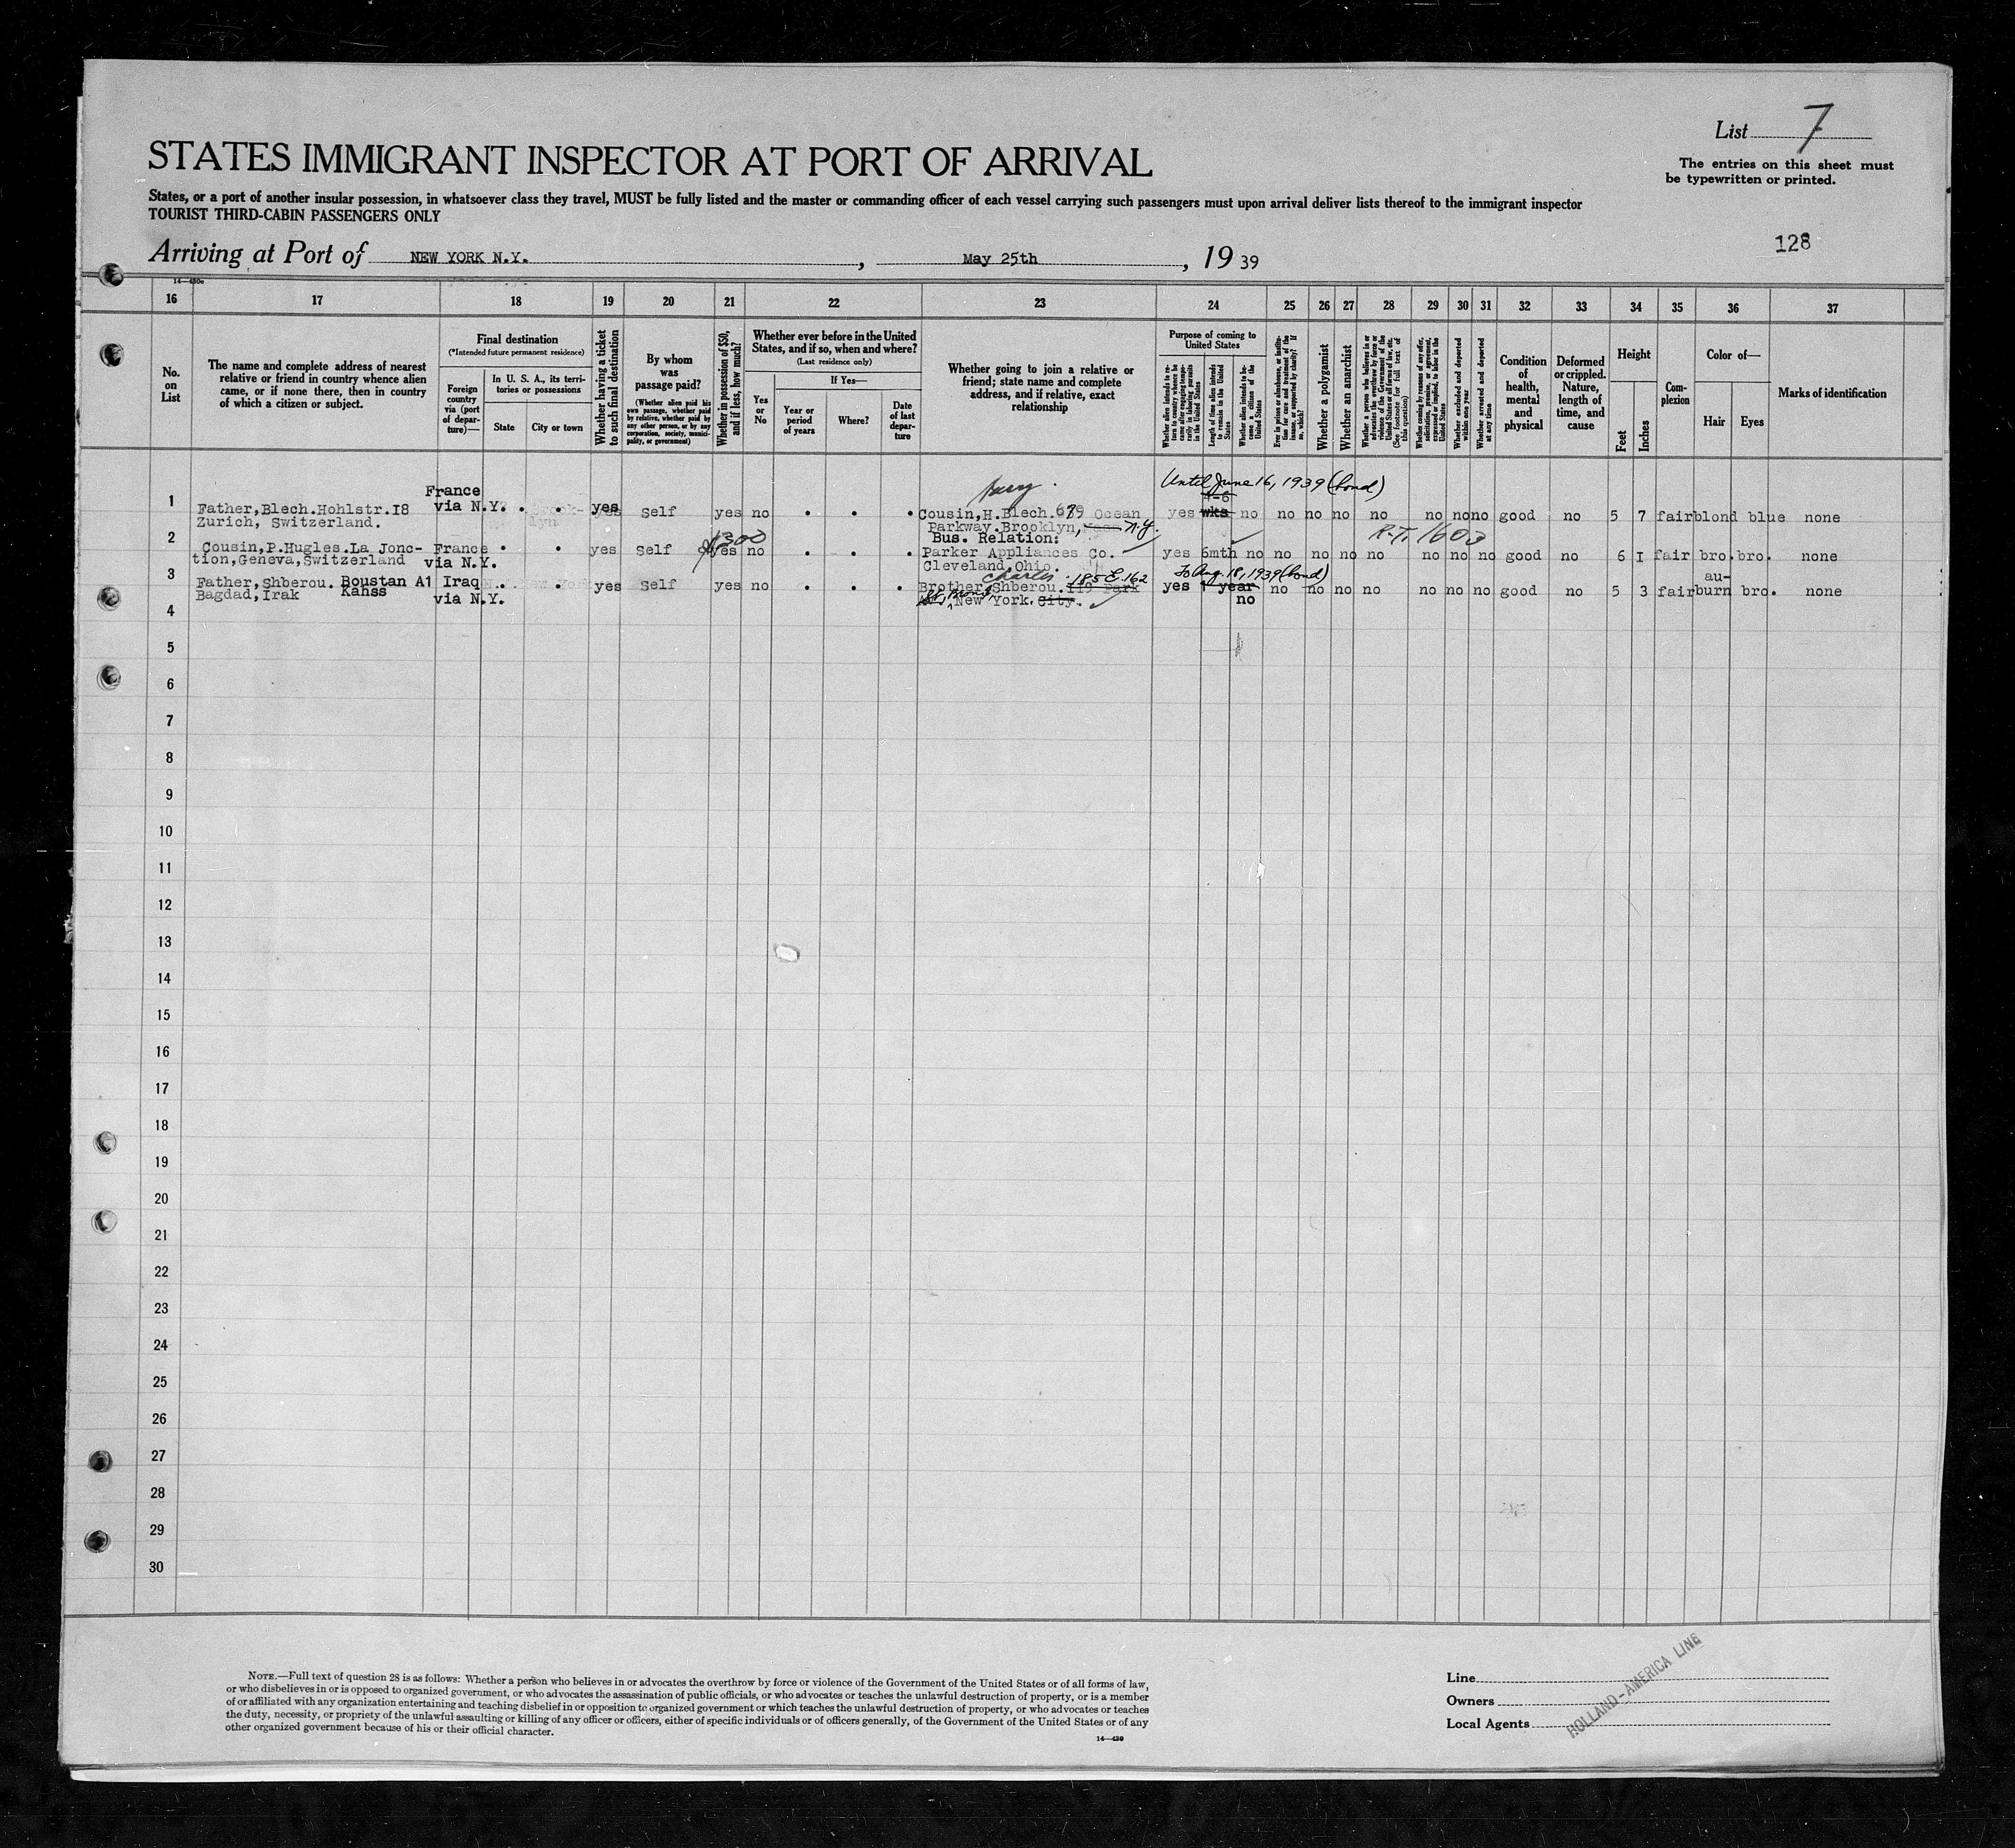 List 7
STATES IMMIGRANT INSPECTOR AT PORT OF ARRIVAL
The entries on this sheet must
be typewritten or printed.
States, or a port of another insular possession, in whatsoever class they travel, MUST be fully listed and the master or commanding officer of each vessel carrying such passengers must upon arrival deliver lists thereof to the immigrant inspector
TOURIST THIRD-CABIN PASSENGERS ONLY
128
Arriving at Port of NEW YORK N.Y. , May 25th , 19 39
16 17 18 19 20 21 22 23 24 25 26 27 28 29 30 31 32 33 34 35 36 37
No.
on
List
The name and complete address of nearest
relative or friend in country whence alien
came, or if none there, then in country
of which a citizen or subject.
Final destination
(*Intended future permanent residence)
Foreign
country
via (port
of depar-
ture)—
In U. S. A., its terri-
tories or possessions
State
City or town
Whether having a ticket
to such final destination
By whom
was
passage paid?
(Whether alien paid his
own passage, whether paid
by relative, whether paid by
any other person, or by any
corporation, society, munici-
pality, or government)
Whether in possession of $50,
and if less, how much?
Whether ever before in the United
States, and if so, when and where?
(Last residence only)
Yes
or
No
If Yes—
Year or
period
of years
Where?
Date
of last
depar-
ture
Whether going to join a relative or
friend; state name and complete
address, and if relative, exact
relationship
Purpose of coming to
United States
Length of time alien intends
to remain in the United
States
Whether alien intends to be-
come a citizen of the
United States
Whether a polygamist
Whether an anarchist
Whether excluded and deported
within one year
Whether arrested and deported
at any time
Condition
of
health,
mental
and
physical
Deformed
or crippled.
Nature,
length of
time, and
cause
Height
Feet
Inches
Com-
plexion
Color of—
Hair
Eyes
Marks of identification
Until June 16, 1939 (bond)
4-6
France
1 Father,Blech.Hohlstr.I8 via N.Y. yes Self yes no Cousin,H.Blech.679 Ocean yes wks no no no no no no no no good no 5 7 fair blond blue none
Zurich, Switzerland. Parkway.Brooklyn, N.Y.
$300 Bus. Relation: R.T. 1600
2 Cousin,P.Hugles.La Jonc- France yes Self yes no Parker Appliances Co. yes 6mth no no no no no no no no good no 6 I fair bro. bro. none
tion,Geneva,Switzerland via N.Y. Cleveland,Ohio.
Charles 185 E. 162 To Aug. 18, 1939 (bond) au-
3 Father,Shberou. Boustan A1 Iraq yes Self yes no Brother,Shberou. 119 Park yes 1 year no no no no no no no good no 5 3 fair burn bro. none
Bagdad,Irak Kahss via N.Y. St, Bronx, New York. City. no
4
5
6
7
8
9
10
11
12
13
14
15
16
17
18
19
20
21
22
23
24
25
26
27
28
29
30
NOTE.—Full text of question 28 is as follows: Whether a person who believes in or advocates the overthrow by force or violence of the Government of the United States or of all forms of law,
or who disbelieves in or is opposed to organized government, or who advocates the assassination of public officials, or who advocates or teaches the unlawful destruction of property, or is a member
of or affiliated with any organization entertaining and teaching disbelief in or opposition to organized government or which teaches the unlawful destruction of property, or who advocates or teaches
the duty, necessity, or propriety of the unlawful assaulting or killing of any officer or officers, either of specific individuals or of officers generally, of the Government of the United States or of any
other organized government because of his or their official character.
14—430
Line
Owners
Local Agents
HOLLAND-AMERICA LINE